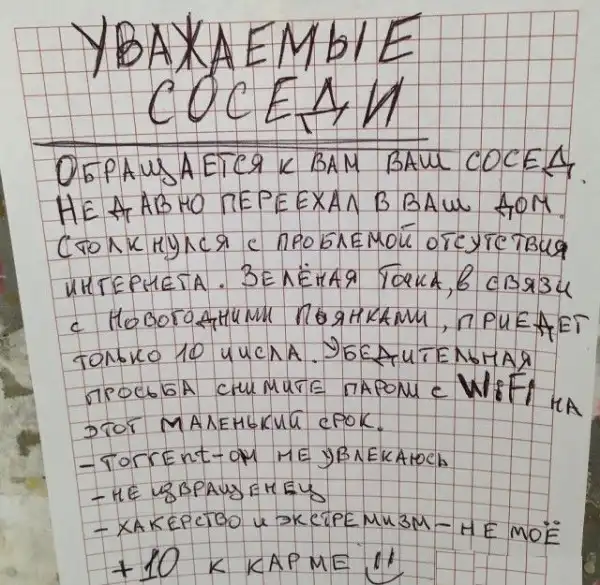 УВАЖАЕМЫЕ
СОСЕДИ
ОБРАЩАЕТСЯ К ВАМ ВАШ СОСЕД.
НЕДАВНО ПЕРЕЕХАЛ В ВАШ ДОМ.
СТОЛКНУЛСЯ С ПРОБЛЕМОЙ ОТСУТСТВИЯ
ИНТЕРНЕТА. ЗЕЛЁНАЯ ТОЧКА, В СВЯЗИ
С НОВОГОДНИМИ ПЬЯНКАМИ, ПРИЕДЕТ
ТОЛЬКО 10 ЧИСЛА. УБЕДИТЕЛЬНАЯ
ПРОСЬБА СНИМИТЕ ПАРОЛИ С WiFi НА
ЭТОТ МАЛЕНЬКИЙ СРОК.
- TORRENT-ОМ НЕ УВЛЕКАЮСЬ
- НЕ ИЗВРАЩЕНЕЦ
- ХАКЕРСТВО И ЭКСТРЕМИЗМ - НЕ МОЁ
+10 К КАРМЕ